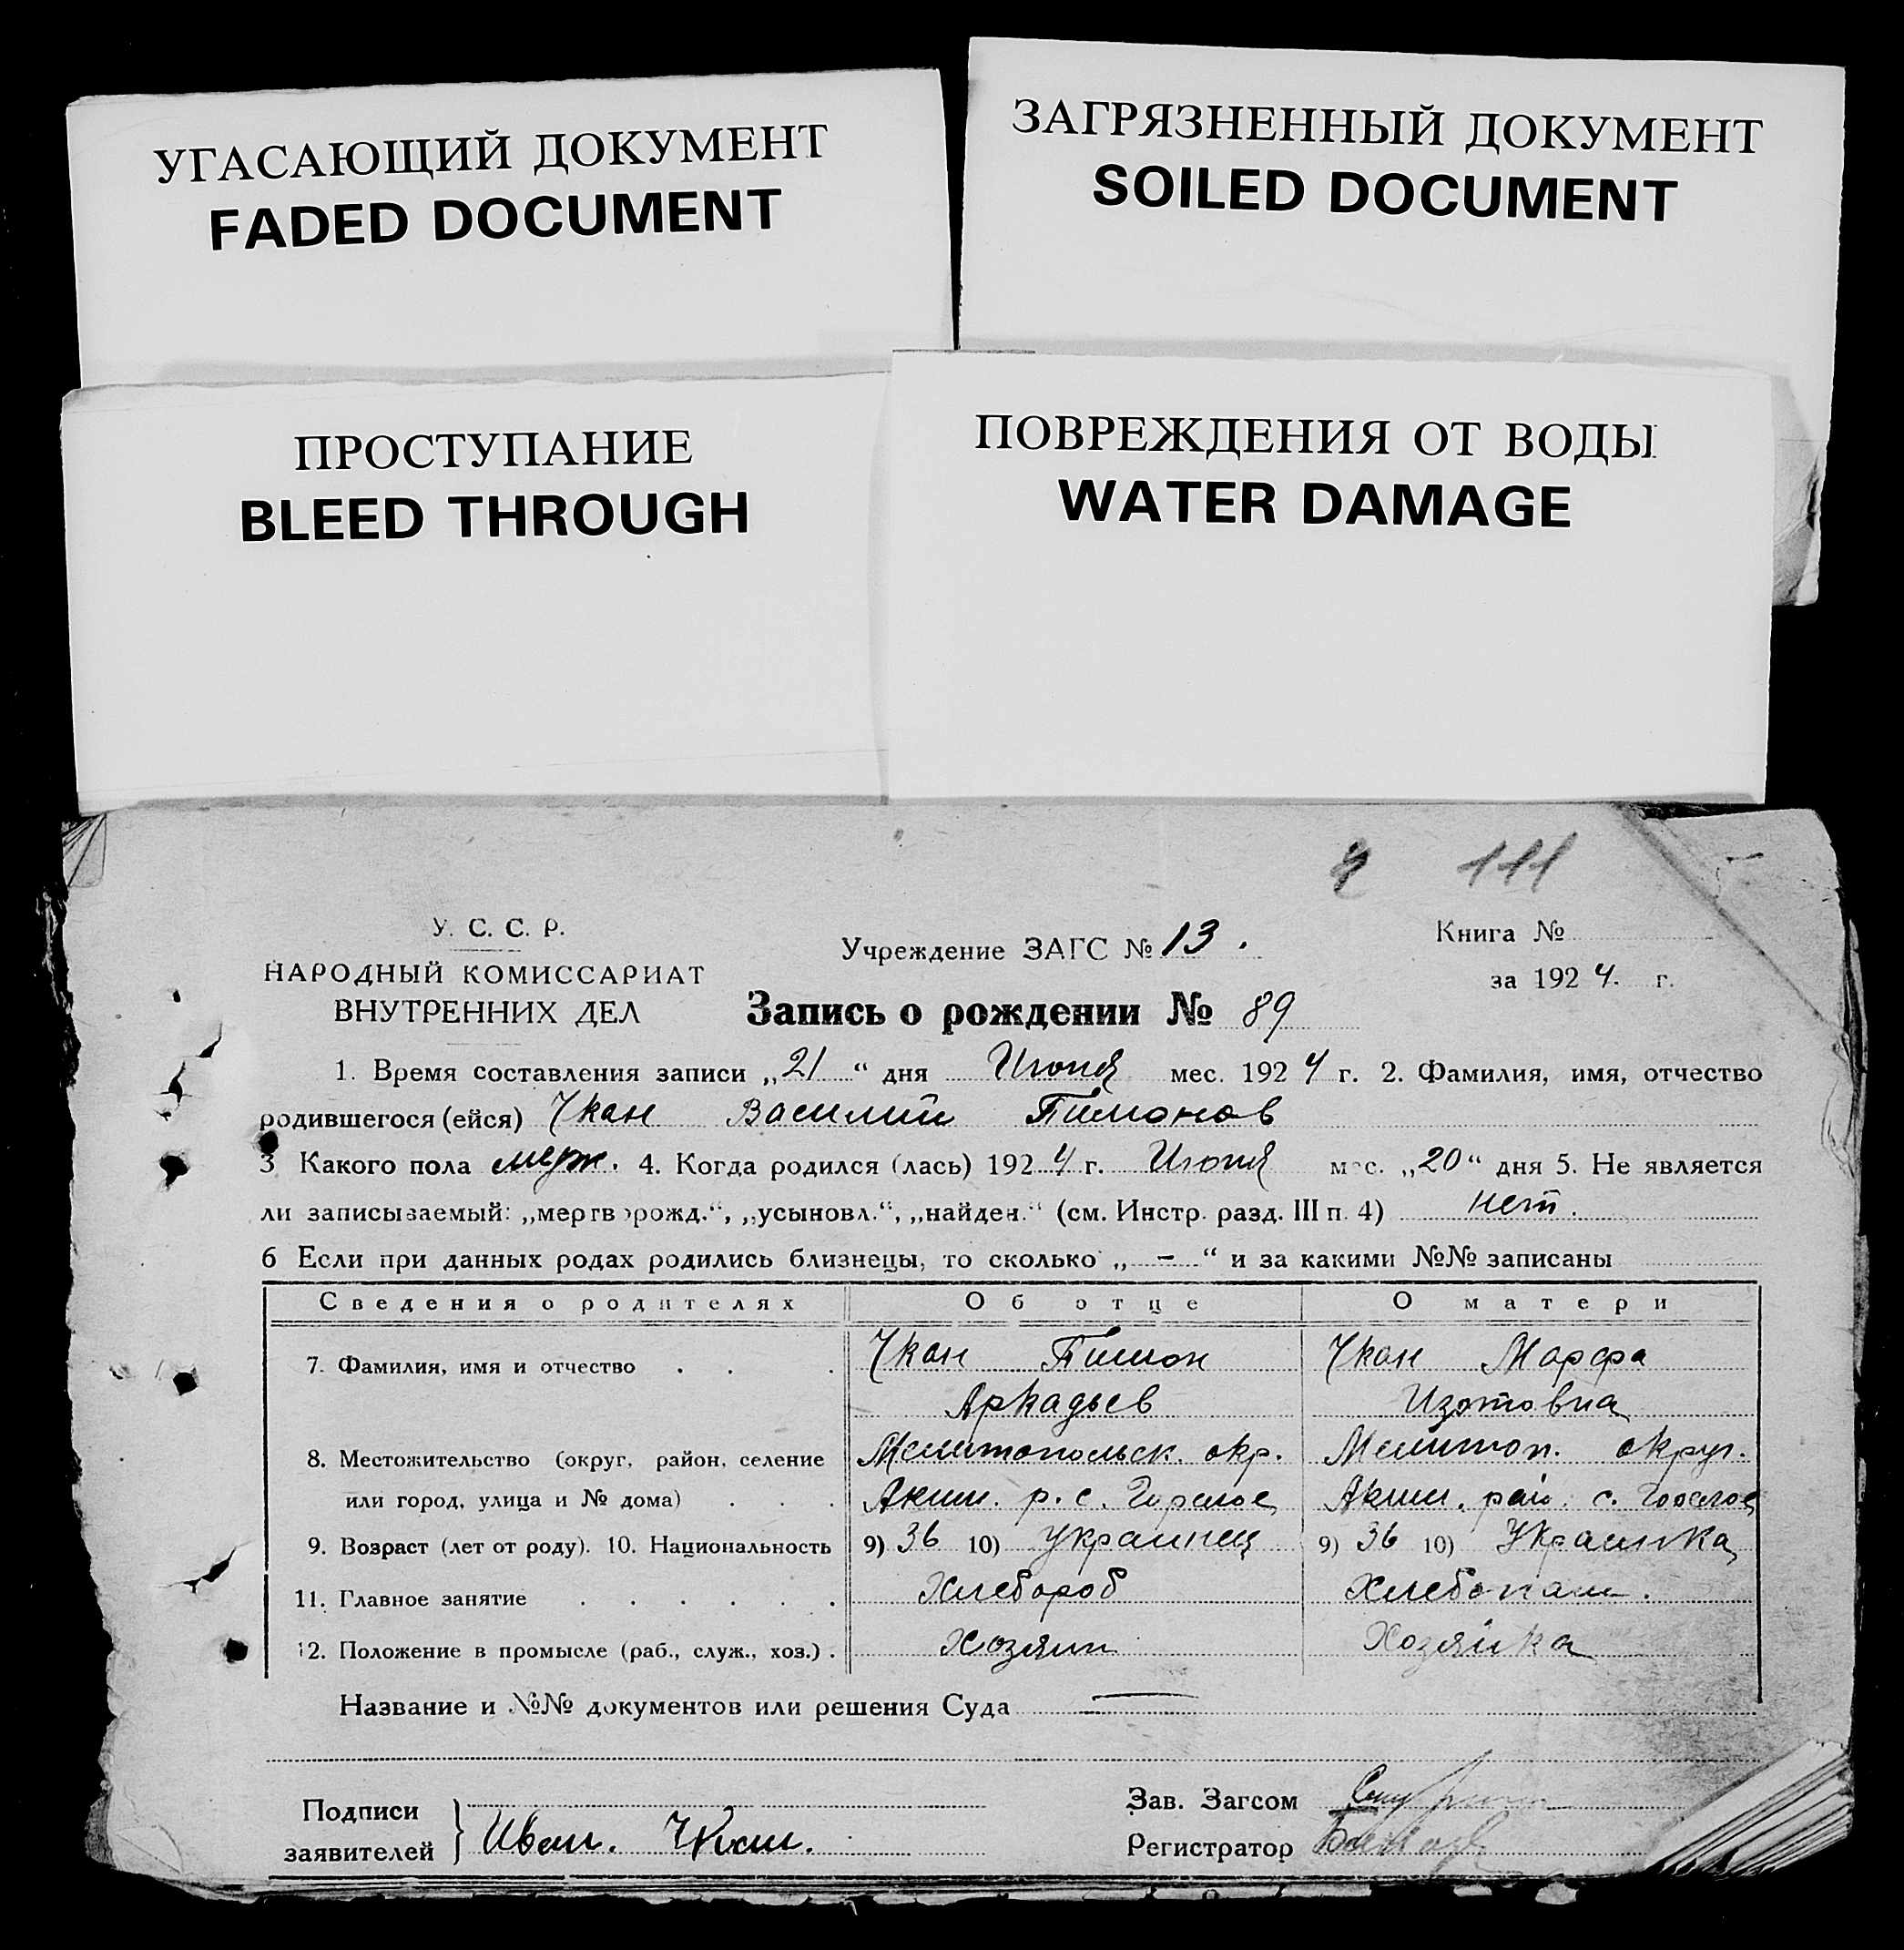 УГАСАЮЩИЙ ДОКУМЕНТ
FADED DOCUMENT
ЗАГРЯЗНЕННЫЙ ДОКУМЕНТ
SOILED DOCUMENT
ПРОСТУПАНИЕ
BLEED THROUGH
ПОВРЕЖДЕНИЯ ОТ ВОДЫ
WATER DAMAGE
111
У. С. С. Р.
НАРОДНЫЙ КОМИССАРИАТ
ВНУТРЕННИХ ДЕЛ
Учреждение ЗАГС № 13.
Книга №
за 1924 г.
Запись о рождении № 89
1. Время составления записи „21“ дня Июня мес. 1924 г. 2. Фамилия, имя, отчество
родившегося (ейся) Чкан Василий Пимонов
3 Какого пола муж. 4. Когда родился (лась) 1924 г. Июня мес. „20“ дня 5. Не является
ли записываемый: „мертворожд.“, „усыновл.“, „найден.“ (см. Инстр. разд. III п. 4) нет.
6 Если при данных родах родились близнецы, то сколько „ – “ и за какими №№ записаны
Сведения о родителях Об отце О матери
7. Фамилия, имя и отчество . . . Чкан Пимон Чкан Марфа
Аркадьев Изотовна
8. Местожительство (округ, район, селение Мелитопольск. окр. Мелитоп. округ.
или город, улица и № дома) . . . Аким. р. с. Горелое Аким. рай. с. Горелое
9. Возраст (лет от роду). 10. Национальность 9) 36 10) Украинец 9) 36 10) Украинка
11. Главное занятие . . . . . . Хлебороб Хлебопаш.
12. Положение в промысле (раб., служ., хоз.) . Хозяин Хозяйка
Название и №№ документов или решения Суда
Подписи
заявителей } Иван. Чкан.
Зав. Загсом
Регистратор